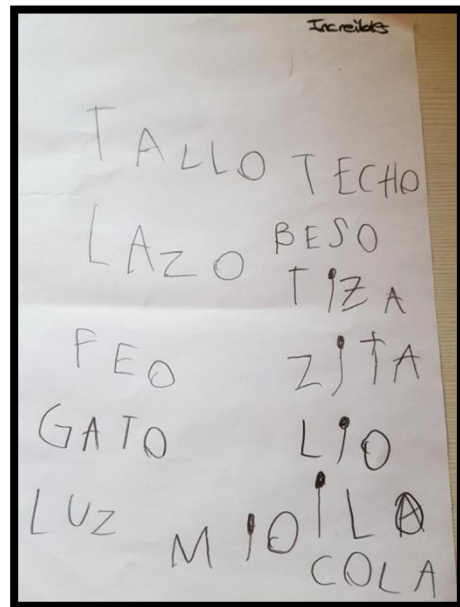 Increibles
TALLO TECHO
LAZO BESO
TiZA
FEO ZiTA
GATO LiO
LUZ MiO
COLA